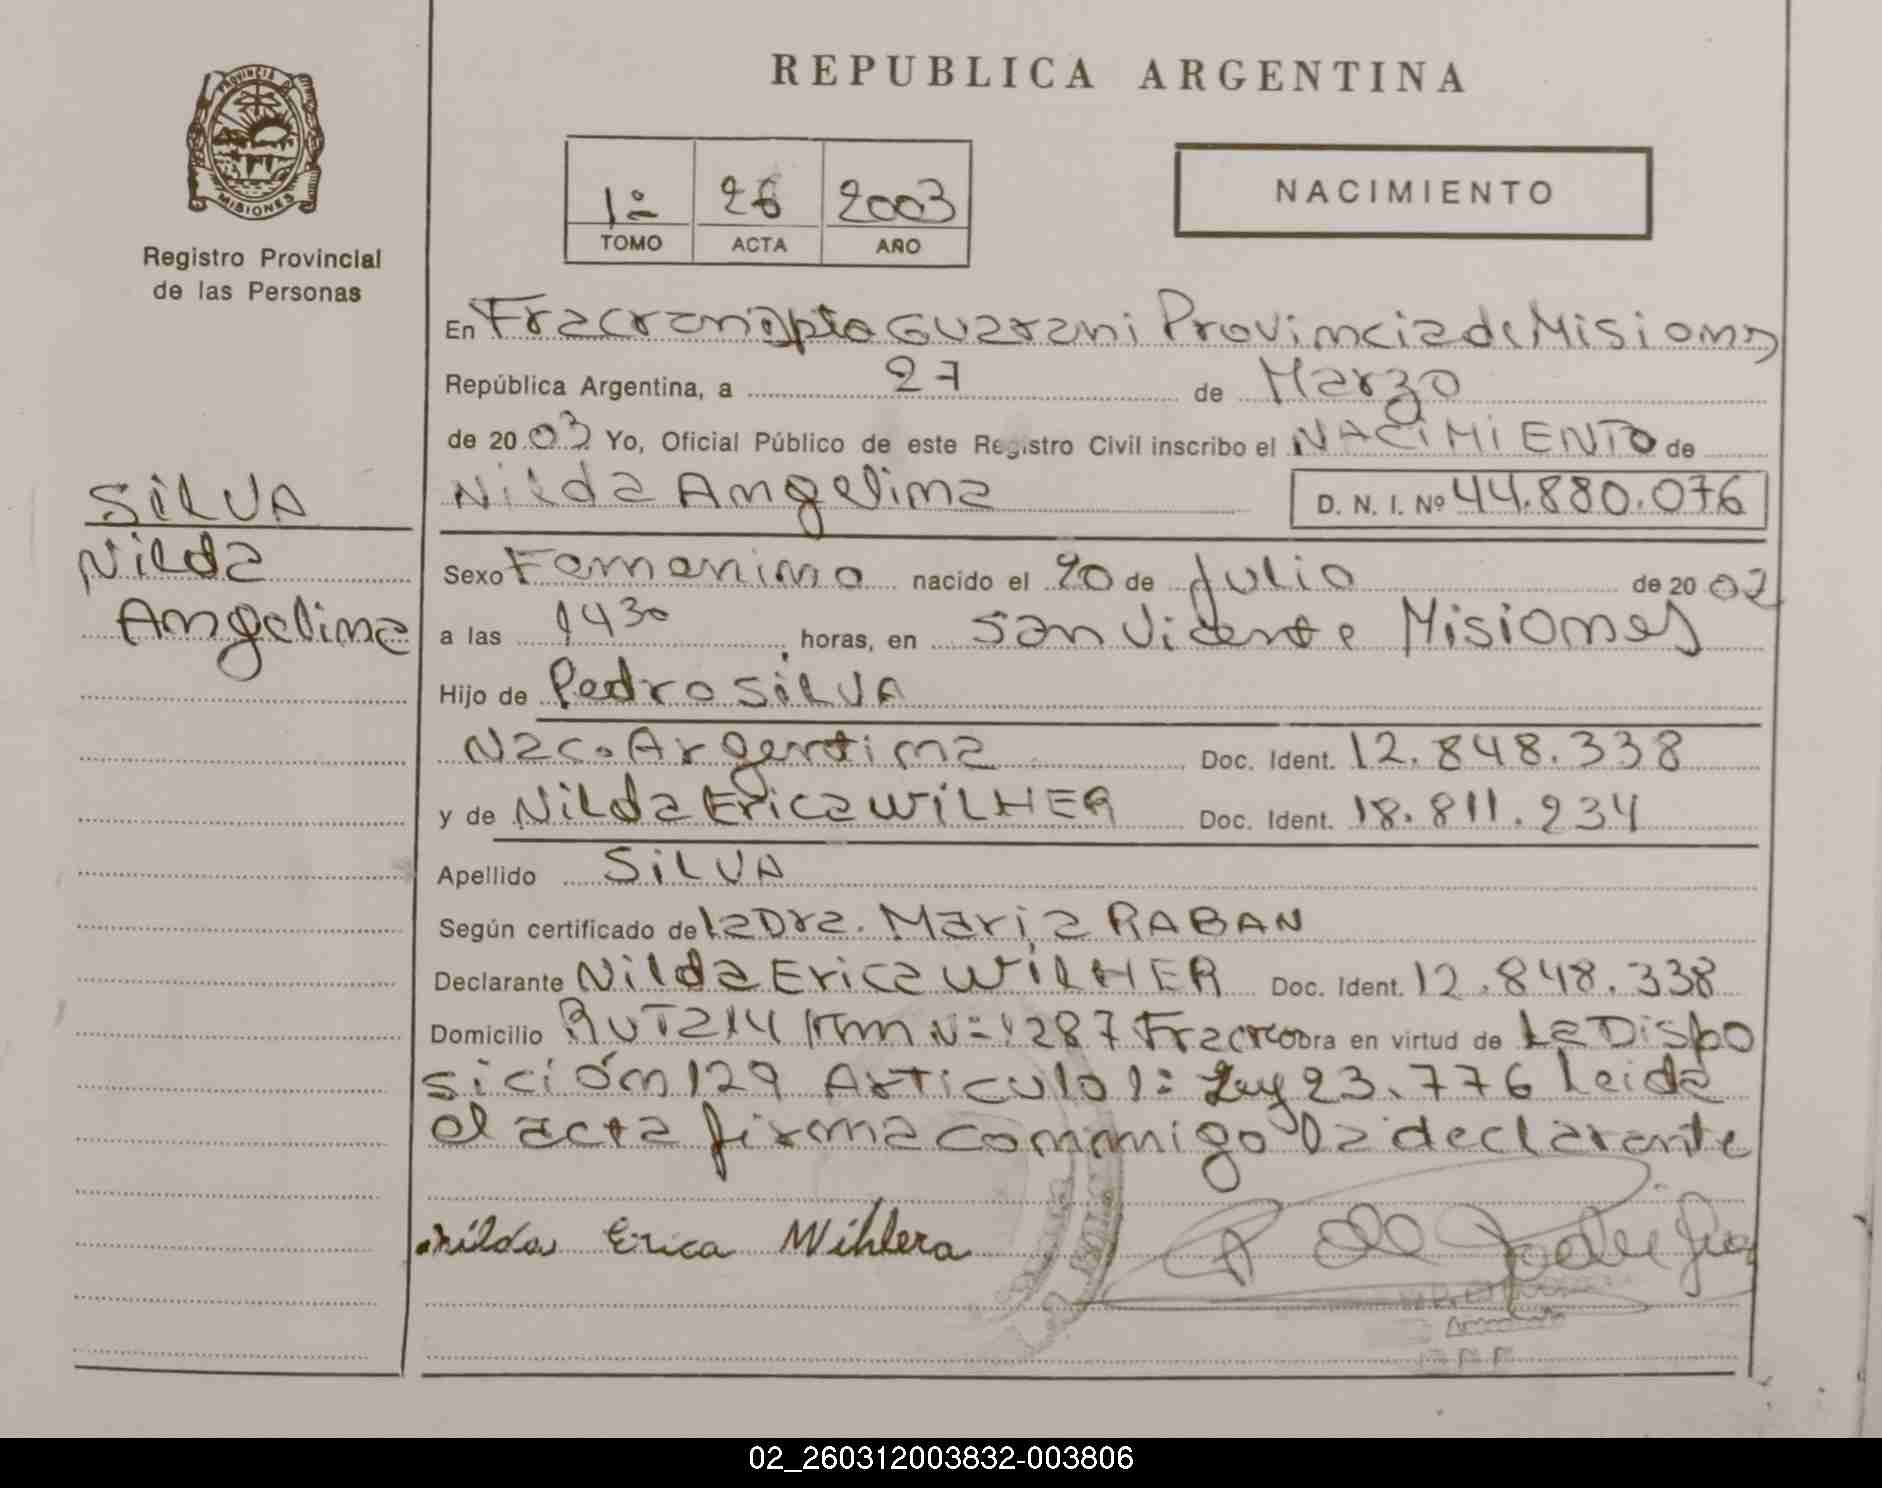 REPUBLICA ARGENTINA
PROVINCIA DE
MISIONES
Registro Provincial
de las Personas
1º 26 2003
TOMO ACTA AÑO
NACIMIENTO
En Fracran Dpto Guarani Provincia de Misiones
República Argentina, a 27 de Marzo
de 20 03 Yo, Oficial Público de este Registro Civil inscribo el NACIMIENTO de
Nilda Angelina D. N. I. Nº 44.880.076
SILVA
Nilda
Angelina
Sexo Femenino nacido el 20 de Julio de 20 02
a las 1430 horas, en San Vicente Misiones
Hijo de Pedro SILVA
Nac. Argentina Doc. Ident. 12.848.338
y de Nilda Erica WILHER Doc. Ident. 18.811.234
Apellido SILVA
Según certificado de la Dra. Maria RABAN
Declarante Nilda Erica WILHER Doc. Ident. 12.848.338
Domicilio Ruta 14 Km Nº 1287 Fracran obra en virtud de La Dispo
sición 129 Articulo 1º Ley 23.776 Leida
el acta firma conmigo la declarante
Nilda Erica Wihlera
02_260312003832-003806